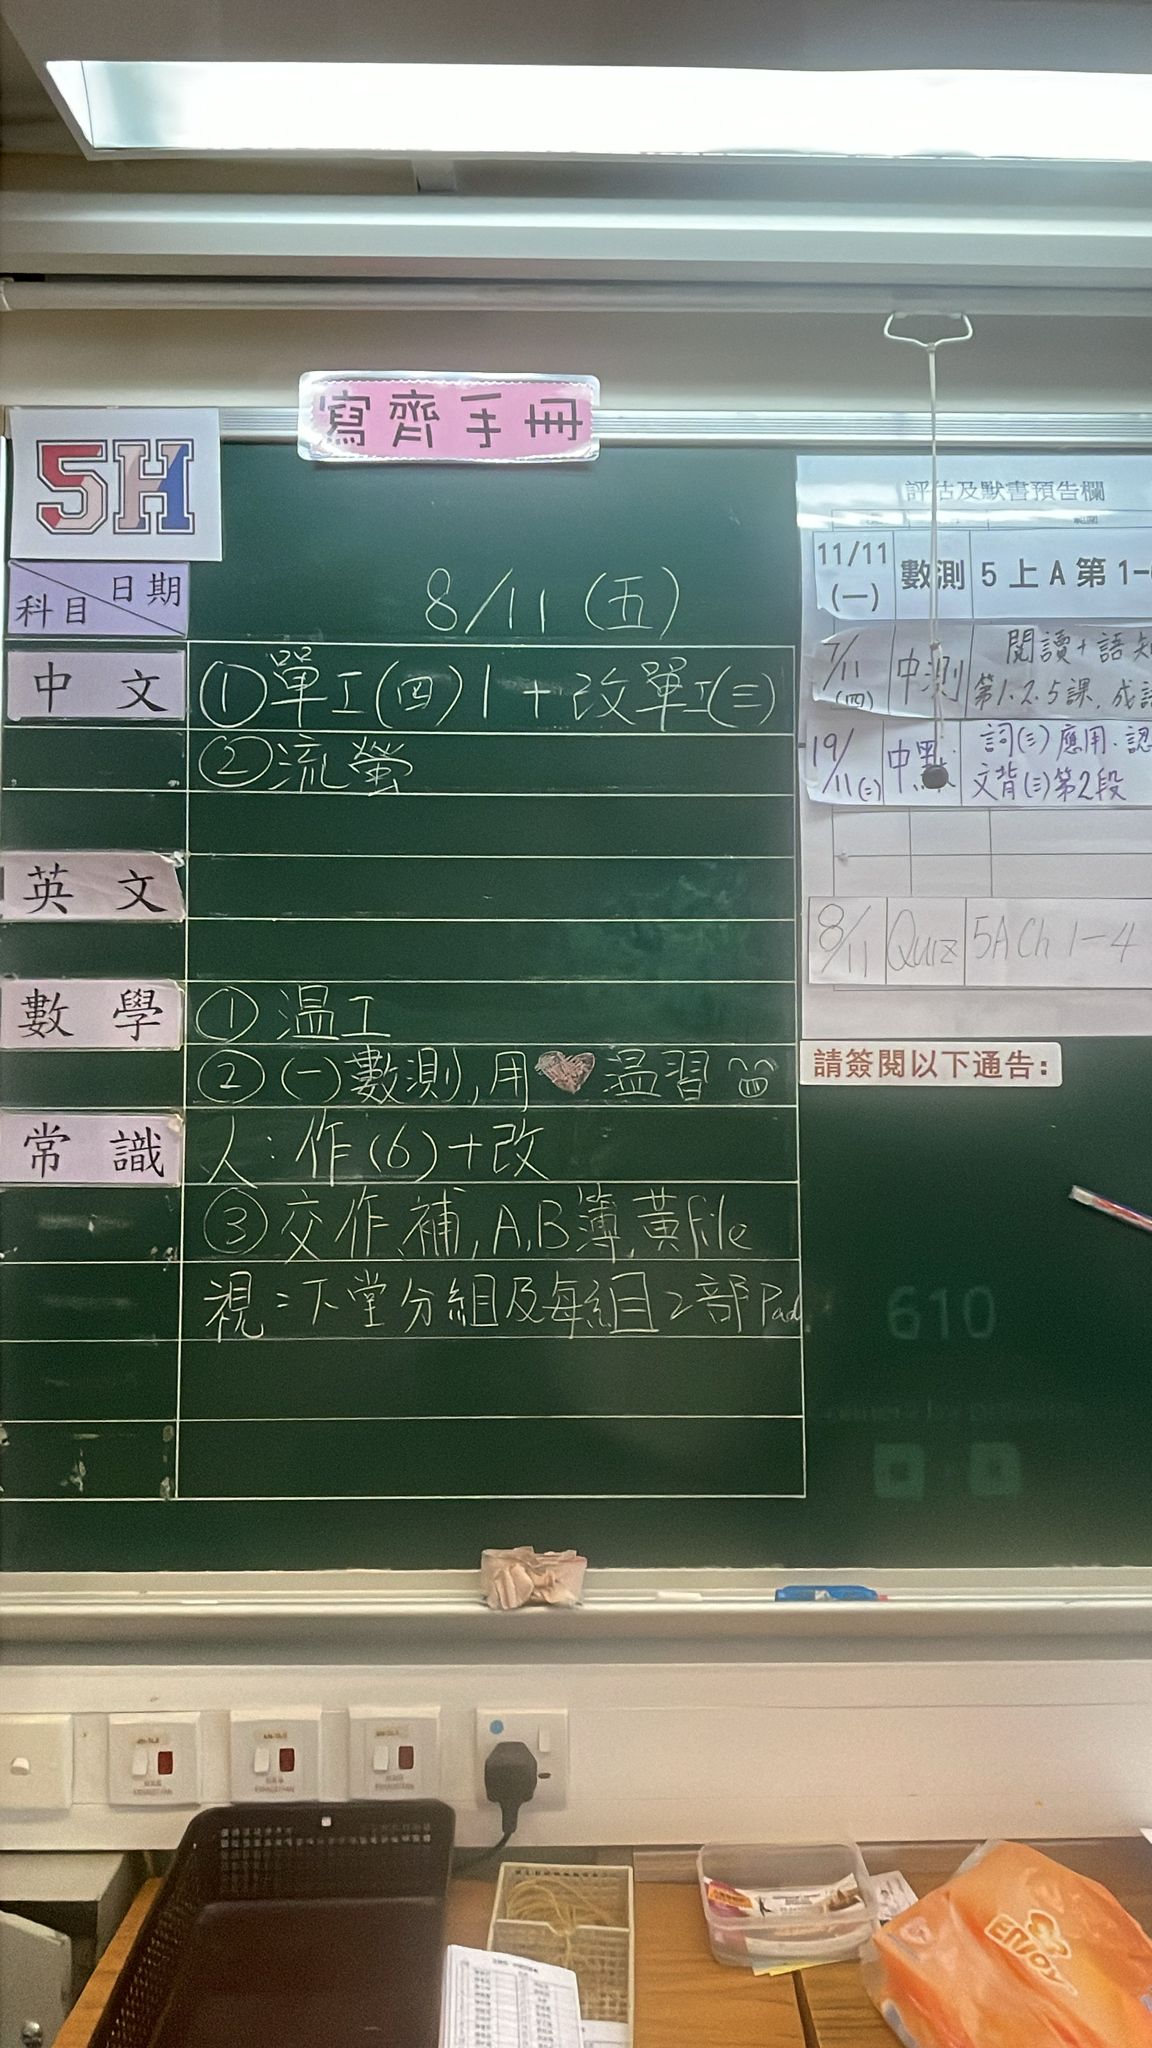 寫齊手冊
5H
日期
科目
8/11 (五)
中文
①單工(四)1+改單工(三)
②流螢
英文
數學
①温工
②(一)數測,用♥温習
常識
人:作(6)+改
③交作,補,A,B簿,黃file
視:下堂分組及每組2部Pad
評估及默書預告欄
範圍
11/11 (一) 數測 5上A第1-
7/11 (四) 中測 閱讀+語知
第1.2.5課,成語
19/11(二) 中默 詞(三)應用.認
文背(三)第2段
8/11 Quiz 5A Ch 1-4
請簽閱以下通告:
610
ENJOY